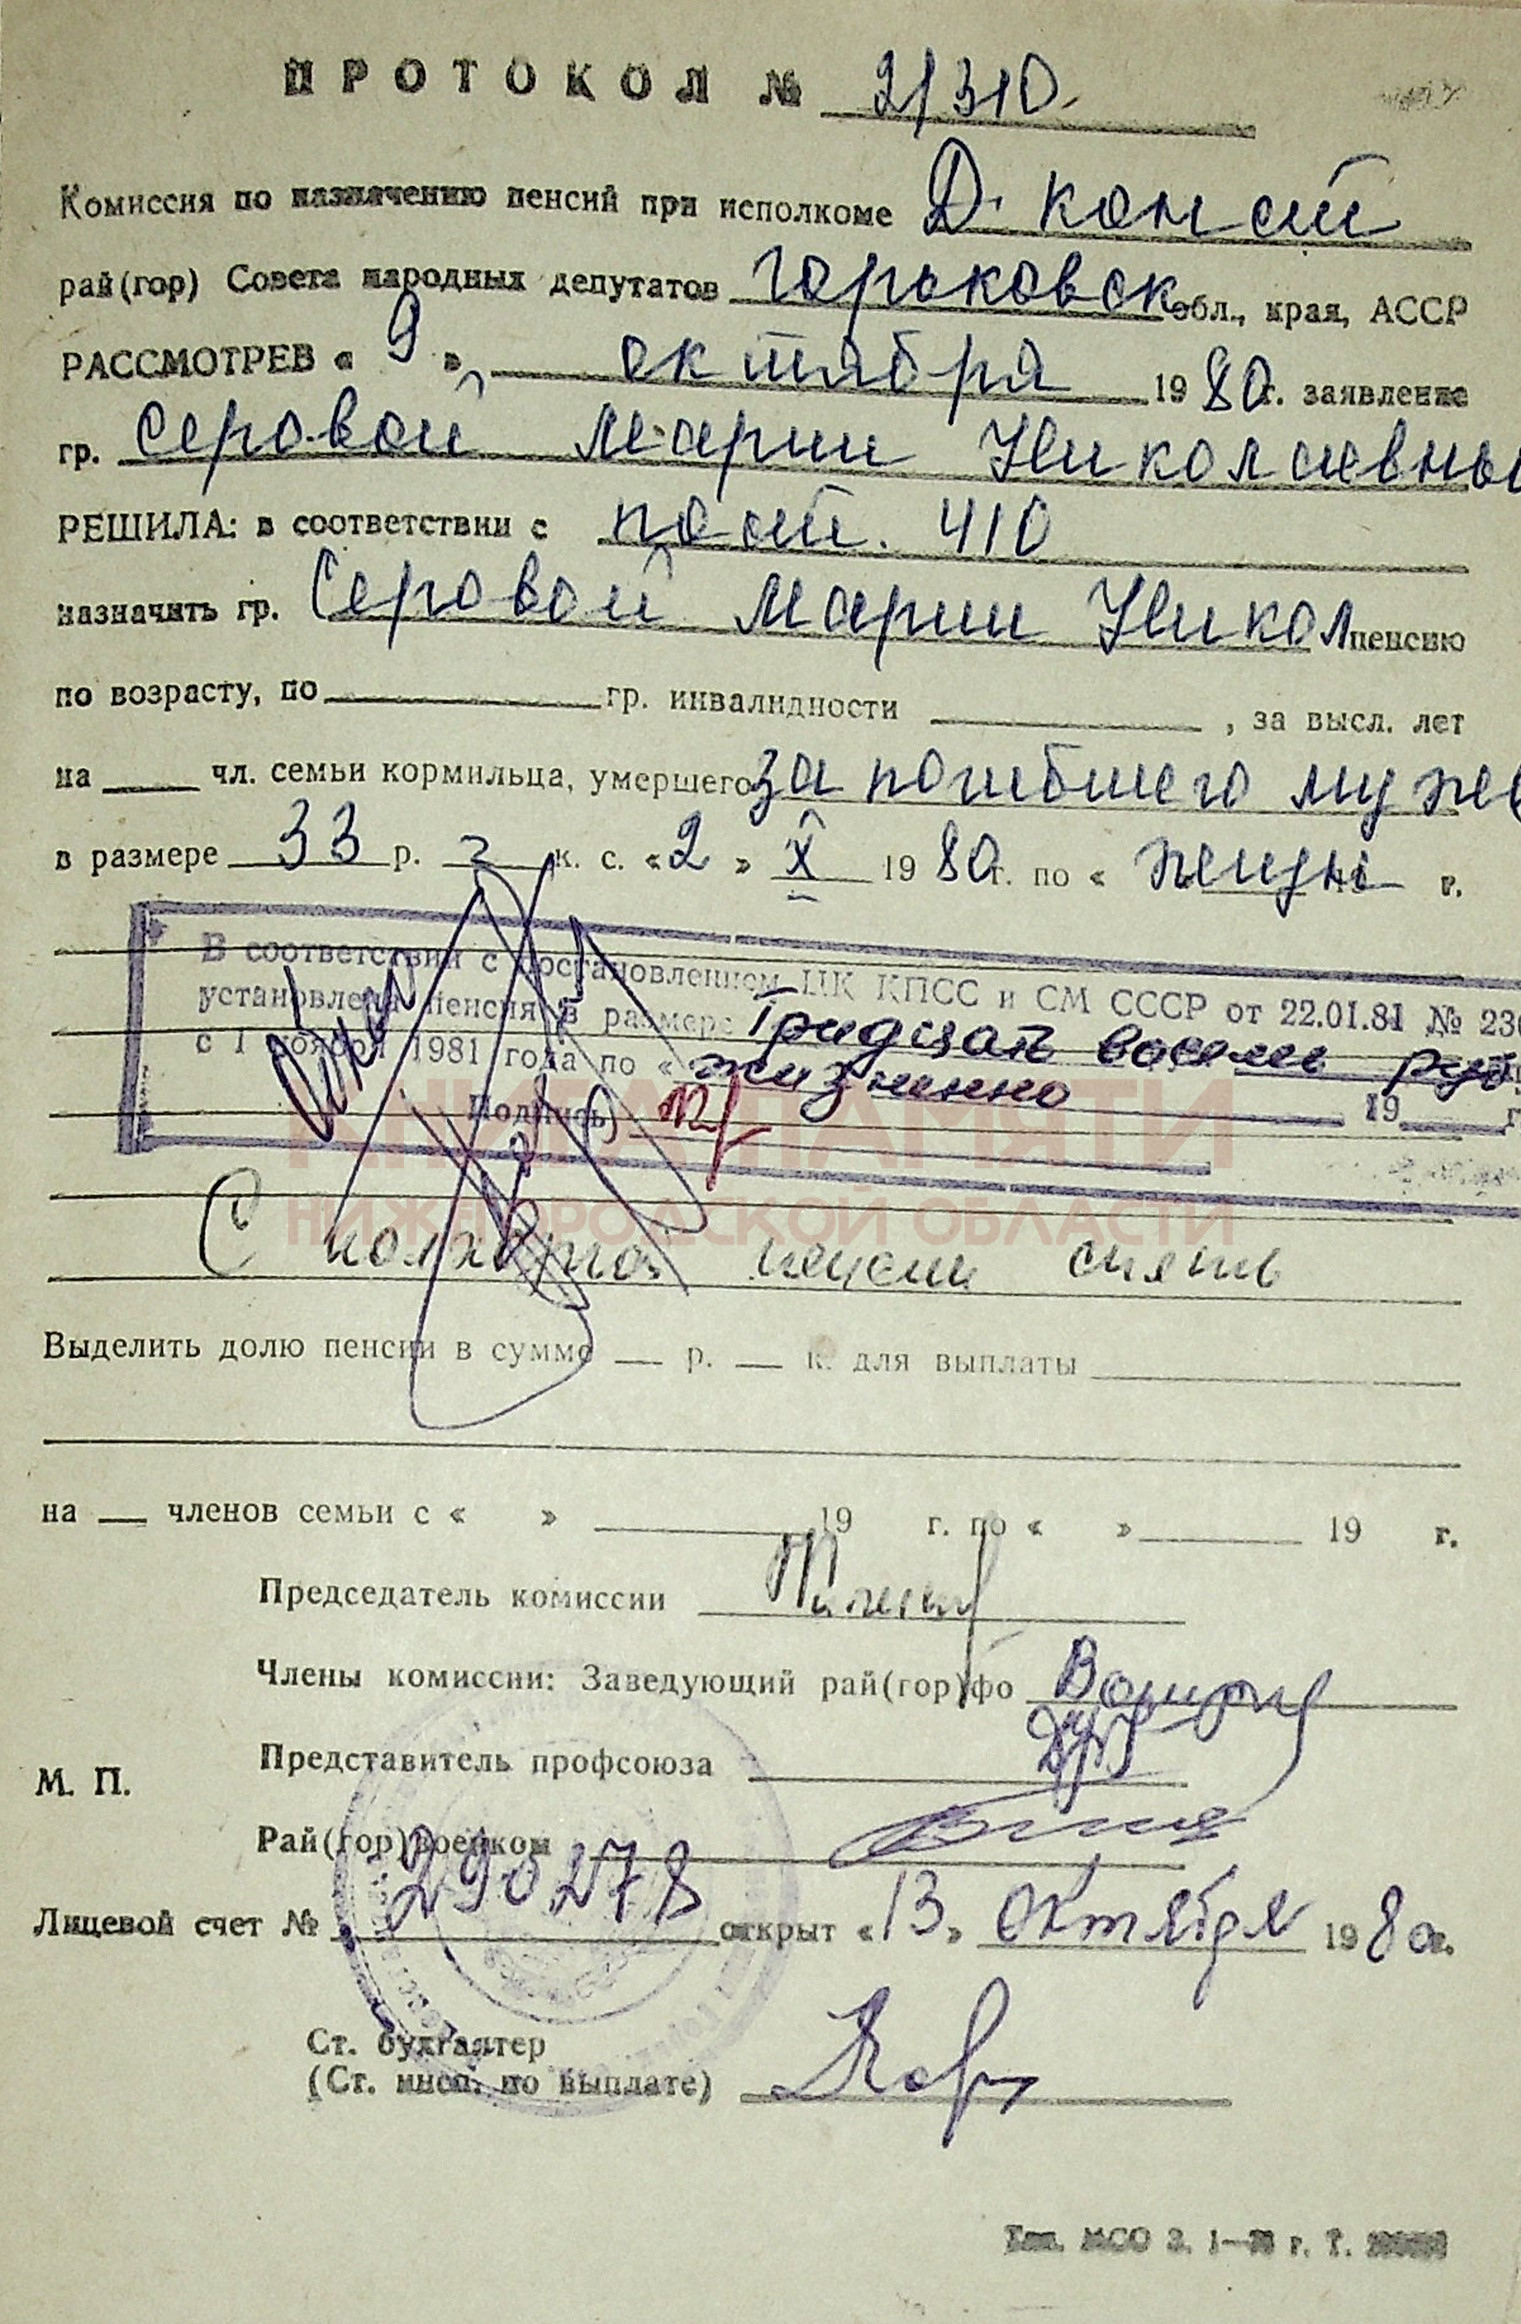 ПРОТОКОЛ № 21310.
Комиссия по назначению пенсий при исполкоме Д. конст
рай(гор) Совета народных депутатов Горьковск обл., края, АССР
РАССМОТРЕВ « 9 » октября 1980 г. заявление
гр. Серовой Марии Николаевны
РЕШИЛА: в соответствии с пост. 410
назначить гр. Серовой Марии Никол пенсию
по возрасту, по гр. инвалидности , за высл. лет
на чл. семьи кормильца, умершего за погибшего мужа
в размере 33 р. к. с. «2» X 1980 г. по « жизн г.
В соответствии с постановлением ЦК КПСС и СМ СССР от 22.01.81 №
установлена пенсия в размере Тридцать восемь руб
с 1 ноября 1981 года по « жизненно
Подпись 19 г
КНИГА ПАМЯТИ
НИЖЕГОРОДСКОЙ ОБЛАСТИ
С колхозной пенсии снять
Выделить долю пенсии в сумме — р. — к. для выплаты
на — членов семьи с « » 19 г. по « » 19 г.
Председатель комиссии
Члены комиссии: Заведующий рай(гор)фо
Представитель профсоюза
М. П.
Рай(гор)военком
Лицевой счет № 290278 открыт «13» октября 1980 г.
Ст. бухгалтер
(Ст. инсп. по выплате)